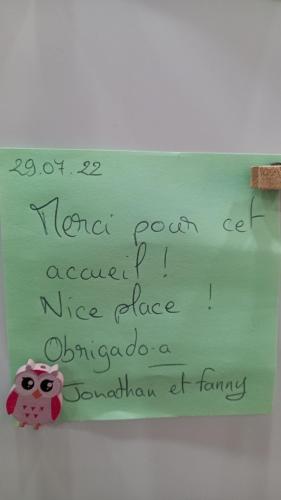 29.07.22
Merci pour cet
accueil !
Nice place !
Obrigado-a
Jonathan et fanny